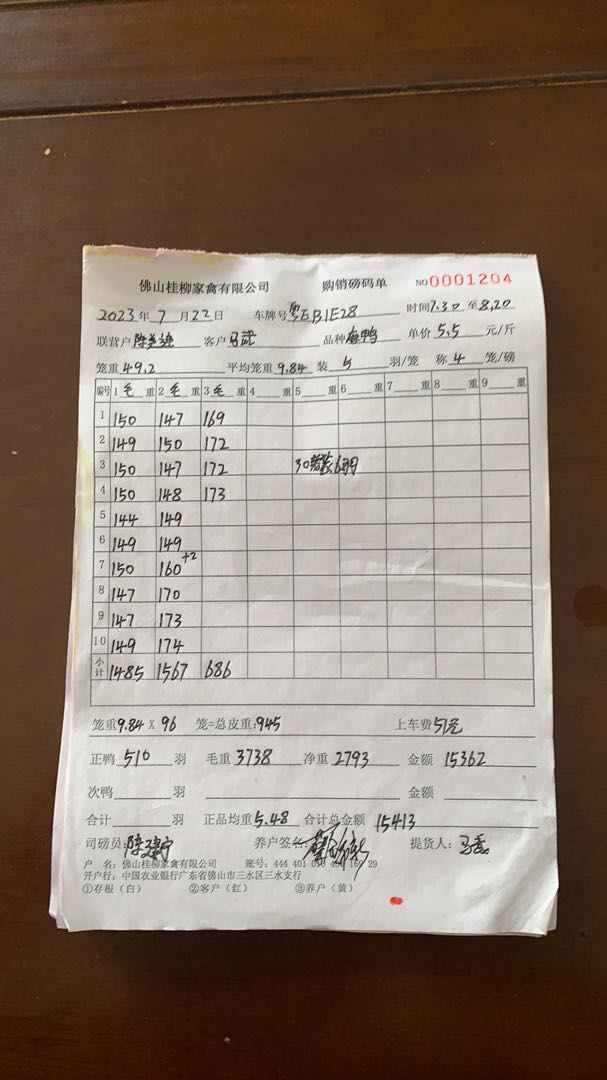 佛山桂柳家禽有限公司 购销磅码单 NO0001204
2023年7月22日 车牌号粤EB1E28 时间7.30至8.20
联营户 客户 品种 鸭 单价5.5元/斤
笼重49.2 平均笼重9.84 装5羽/笼 称4笼/磅
编号 1毛重 2毛重 3毛重 4重 5重 6重 7重 8重 9重
1 150 147 169
2 149 150 172
3 150 147 172 30 装6羽
4 150 148 173
5 144 149
6 149 149
7 150 160+2
8 147 170
9 147 173
10 149 174
小计 1485 1567 686
笼重9.84×96笼=总皮重:945 上车费51元
正鸭510羽 毛重3738 净重2793 金额15362
次鸭 羽 金额
合计 羽 正品均重5.48 合计总金额15413
司磅员: 养户签名: 提货人:
户 名:佛山桂柳家禽有限公司 账号:444 401 010 400 29
开户行:中国农业银行广东省佛山市三水区三水支行
①存根(白) ②客户(红) ③养户(黄)